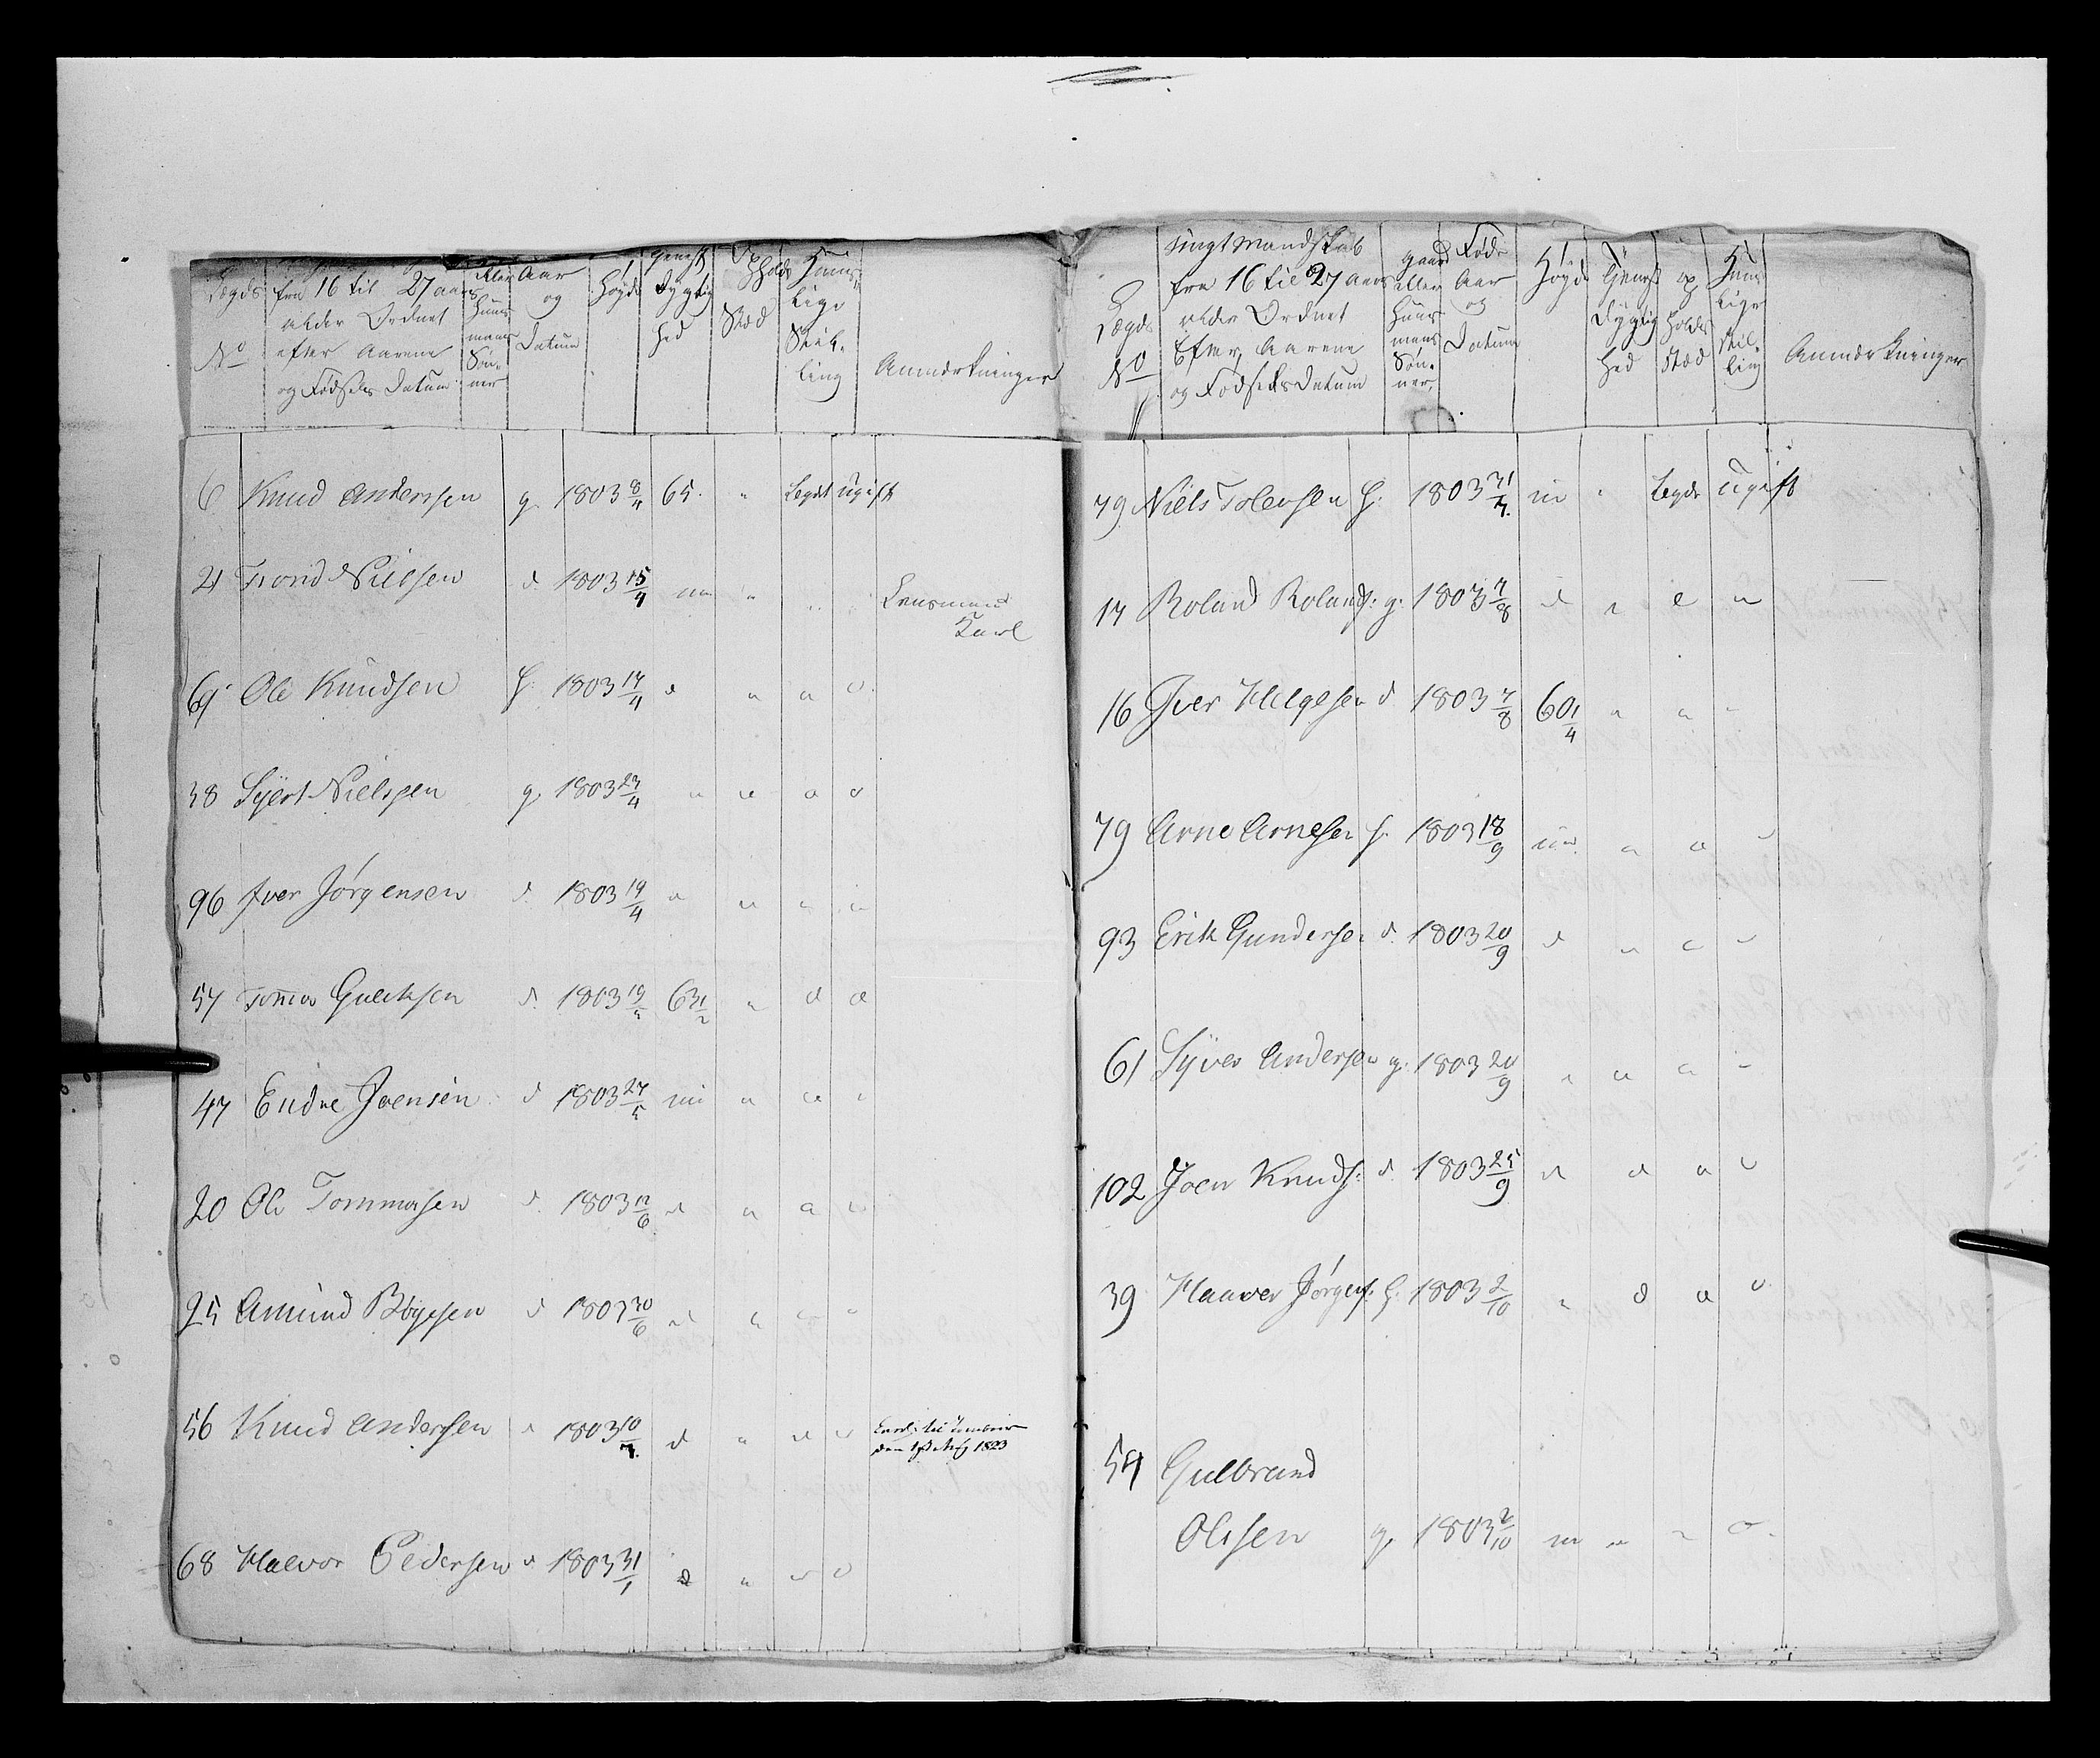 Lægds No
fra 16 til 27 aars alder Ordnet efter Aarene og Fødselens Datum
eller Huusmans Sønner
Aar og Datum
Høyde
Dygtighed
Opholds Stæd
Huuslige Stilling
Anmærkninger
6 Knud Anderssen g. 1803 8/4 65. " Legdet ugift
21 Trond Nielsen d 1803 15/4 " " " Lensmand Karl
69 Ole Knudsen h. 1803 17/4 d " " "
38 Syert Nielssen g. 1803 23/4 " " " "
96 Iver Jørgensen d. 1803 19/4 " " " "
57 Tomas Gulchsen d. 1803 19/5 63 1/2 " d d
47 Endre Joensen d 1803 27/5 " " "
20 Ole Tommesen d. 1803 12/6 d " " "
25 Amund Bøygesen d 1803 30/6 " " " "
56 Knud Anderssen d 1803 10/7. d " " "
den 1823
68 Halvor Pedersen d 1803 31/1 d " " "
Lægds No
ungt Mandskab fra 16 til 27 aars alder Ordnet Efter Aarene og Fødselens Datum
gaard eller Huusmans Sønner
Føds Aar og Datum
Høyde
Tjenest Dygtighed
opholds Stæd
Huuslige Stilling
Anmærkninger
79 Niels Tolevsen h. 1803 31/7. " Legde ugift
17 Roland Rolands: g. 1803 7/8 d " " "
16 Iver Helgesen d 1803 7/8 60 1/4 " " "
79 Arne Arnesen h. 1803 18/9 " " "
93 Erik Gundersen d. 1803 20/9 d " " "
61 Syver Andersen g. 1803 20/9 " " " "
102 Joen Knuds: d. 1803 25/9 d d " "
39 Haaver Jørgens: h. 1803 2/10 " d " "
54 Gulbrand
Olssen g. 1803 2/10 " " "